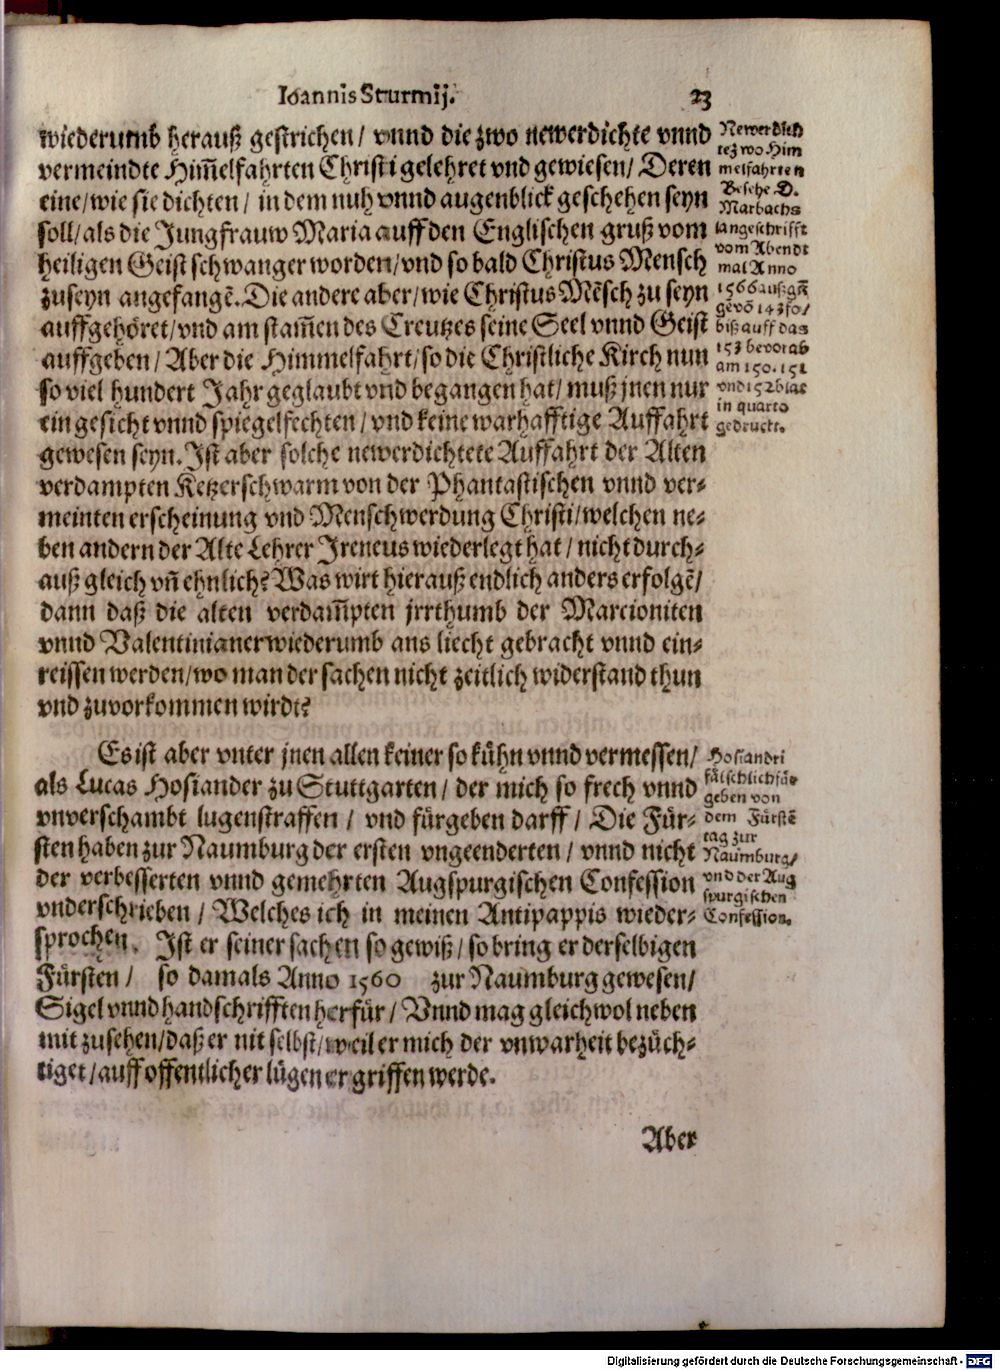 Ioannis Sturmij. 23
wiederumb herauß gestrichen / vnnd die zwo newerdichte vnnd
vermeindte Him̃elfahrten Christi gelehret vnd gewiesen / Deren
eine / wie sie dichten / in dem nuh vnnd augenblick geschehen seyn
soll / als die Jungfrauw Maria auff den Englischen gruß vom
heiligen Geist schwanger worden / vnd so bald Christus Mensch
zuseyn angefangẽ. Die andere aber / wie Christus Mẽsch zu seyn
auffgehöret / vnd am stam̃en des Creutzes seine Seel vnnd Geist
auffgeben / Aber die Himmelfahrt / so die Christliche Kirch nun
so viel hundert Jahr geglaubt vnd begangen hat / muß jnen nur
ein gesicht vnnd spiegelfechten / vnd keine warhafftige Auffahrt
gewesen seyn. Ist aber solche newerdichtete Auffahrt der Alten
verdampten Ketzerschwarm von der Phantastischen vnnd ver⸗
meinten erscheinung vnd Menschwerdung Christi / welchen ne⸗
ben andern der Alte Lehrer Ireneus wiederlegt hat / nicht durch⸗
auß gleich vñ ehnlich? Was wirt hierauß endlich anders erfolgẽ /
dann daß die alten verdam̃pten jrrthumb der Marcioniten
vnnd Valentinianer wiederumb ans liecht gebracht vnnd ein⸗
reissen werden / wo man der sachen nicht zeitlich widerstand thun
vnd zuvorkommen wirdt?
Newerdich
te zwo Him
melfahrten
Besehe D.
Marbachs
langeschrifft
vom Abendt
mal Anno
1566 außgã
gevõ 143 fo /
biß auff das
153 bevorab
am 150. 151
vnd 152 blat
in quarto
gedruckt.
Es ist aber vnter jnen allen keiner so kühn vnnd vermessen /
als Lucas Hosiander zu Stuttgarten / der mich so frech vnnd
vnverschambt lugenstraffen / vnd fürgeben darff / Die Für⸗
sten haben zur Naumburg der ersten vngeenderten / vnnd nicht
der verbesserten vnnd gemehrten Augspurgischen Confession
vnderschrieben / Welches ich in meinen Antipappis wieder⸗
sprochen. Ist er seiner sachen so gewiß / so bring er derselbigen
Fürsten / so damals Anno 1560 zur Naumburg gewesen /
Sigel vnnd handschrifften herfür / Vnnd mag gleichwol neben
mit zusehen / daß er nit selbst / weil er mich der vnwarheit bezüch⸗
tiget / auff offentlicher lügen ergriffen werde.
Hosiandri
fälschlich für⸗
geben von
dem Fürstẽ
tag zur
Naumburg /
vnd der Aug
spurgischen
Confession.
Aber
Digitalisierung gefördert durch die Deutsche Forschungsgemeinschaft - DFG